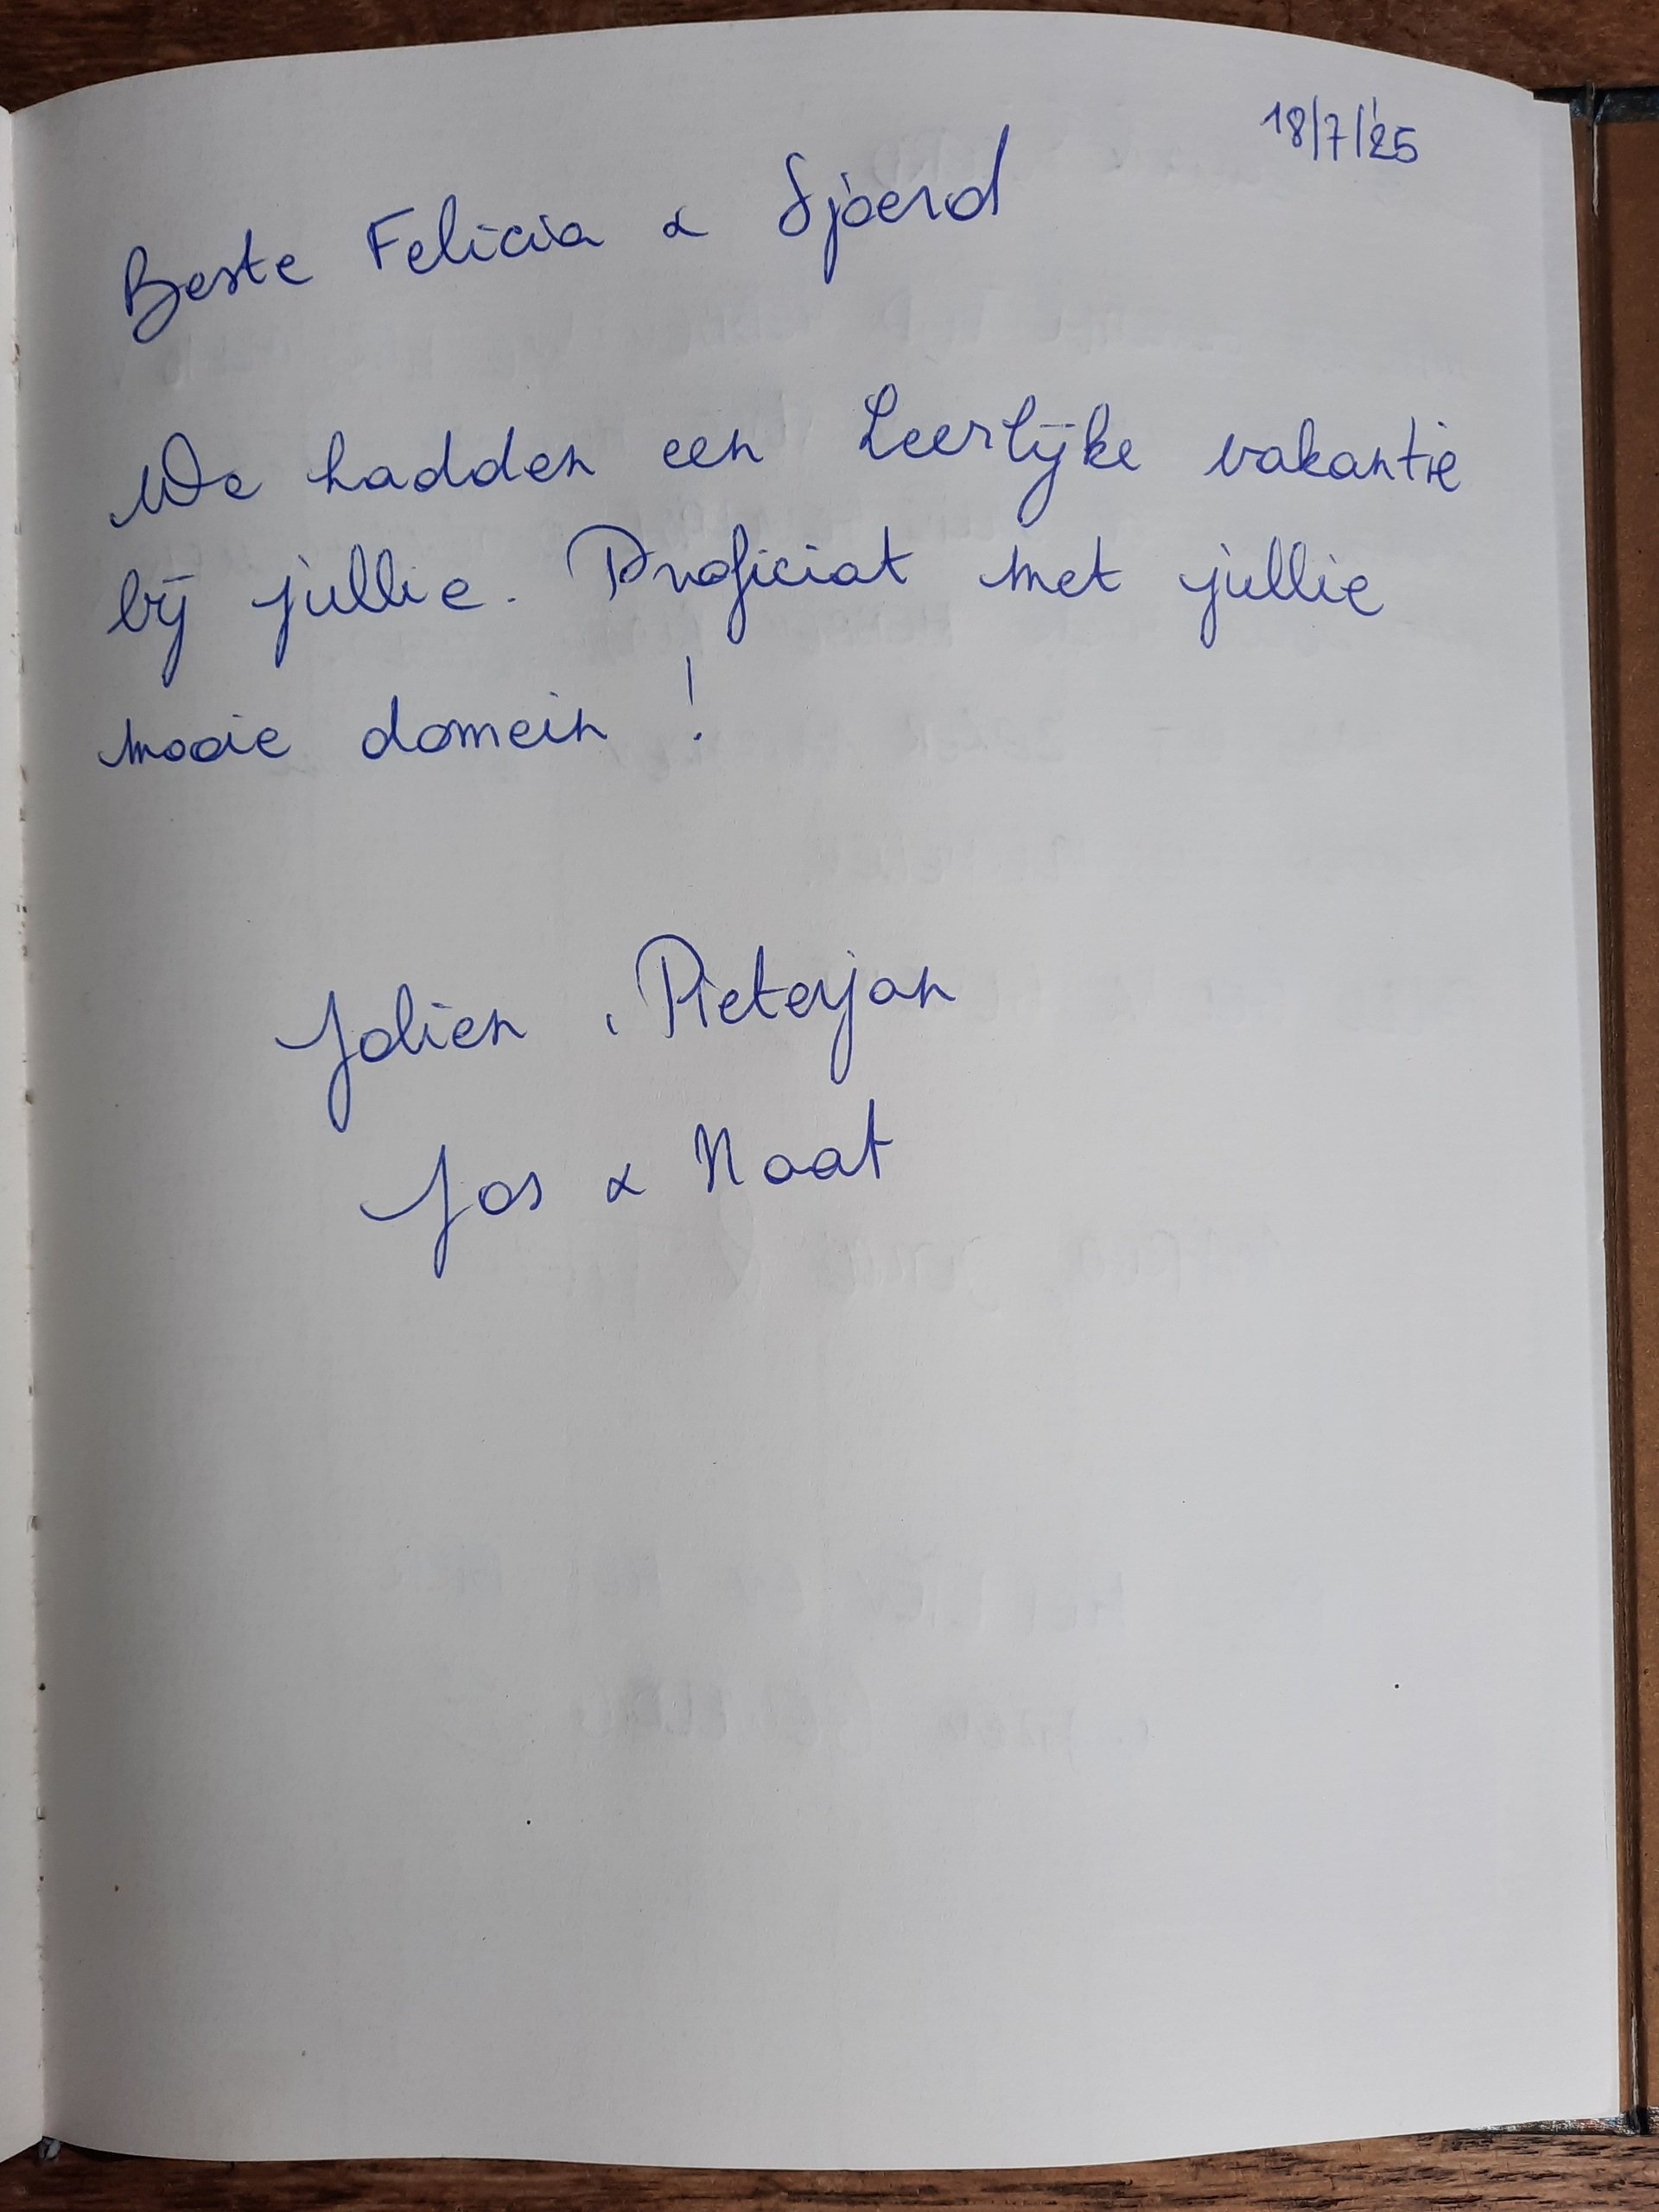 18/7/'25
Beste Felicia & Sjoerd
We hadden een heerlijke vakantie
bij jullie. Proficiat met jullie
mooie domein !
Jolien, Pieterjan
Jos & Noat